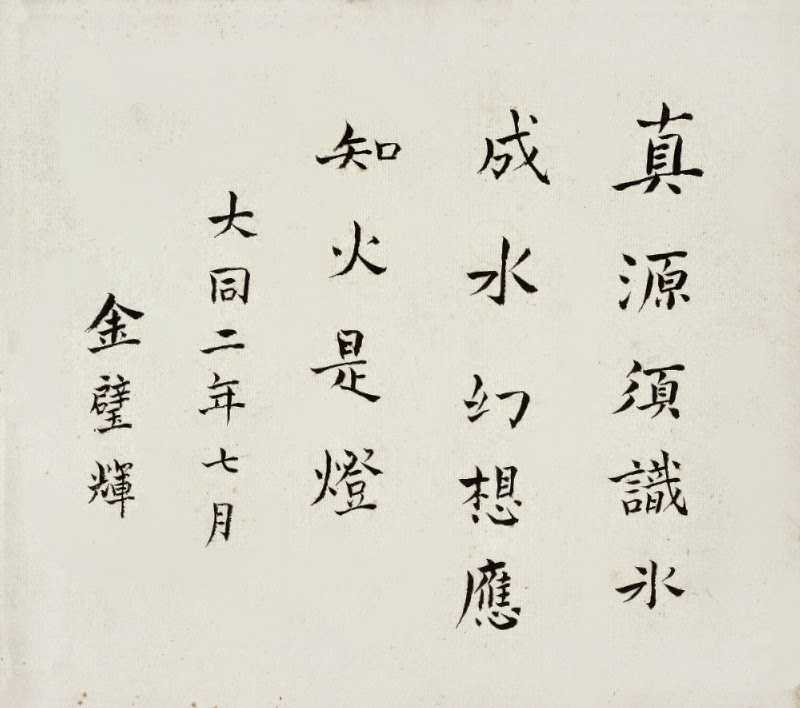 真源須識氷
成水幻想應
知火是燈
大同二年七月
金璧輝